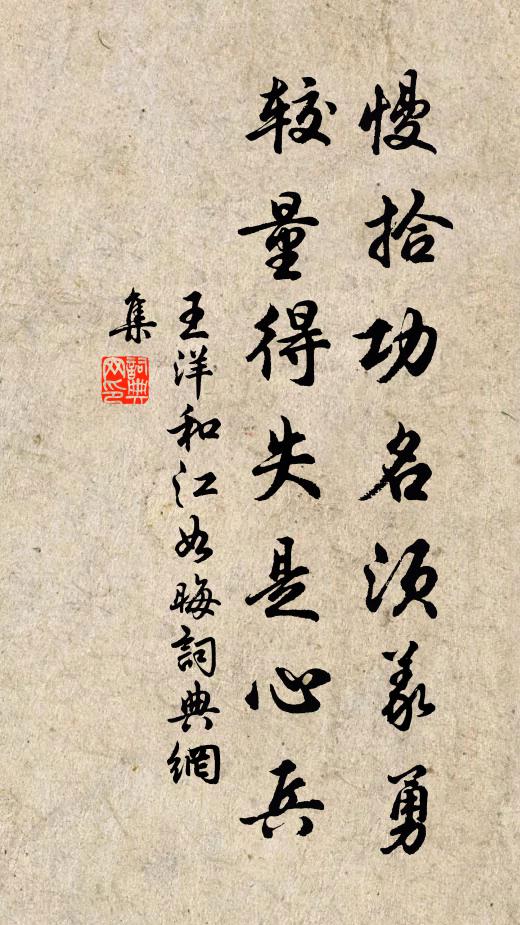 慢拾功名須義勇
較量得失是心兵
王洋和江如晦詞典網
集
詞典
网印